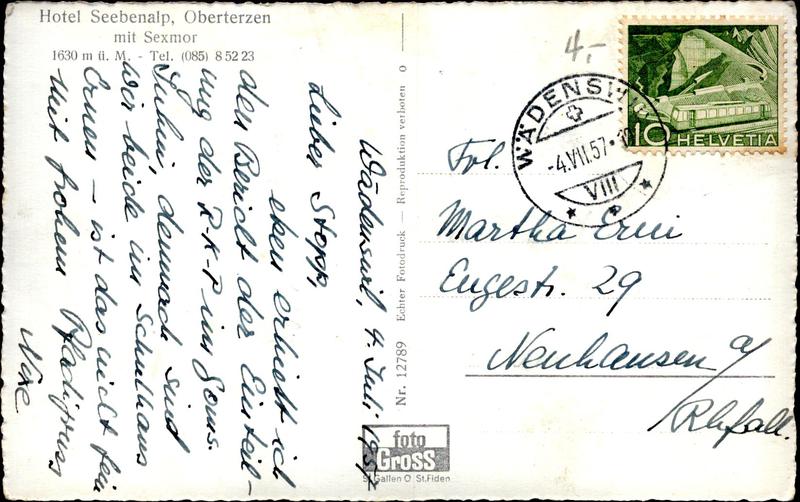 Hotel Seebenalp, Oberterzen
mit Sexmor
1630 m ü. M. - Tel. (085) 8 52 23
Wädenswil, 4. Juli 1957
Lieber Stopp,
eben erhielt ich
den Bericht der Einteil-
ung der
im
demnach sind
wir beide im Schulhaus
Ernen – ist das nicht fein
Mit frohem Pfadigruss
Nr. 12789 Echter Fotodruck — Reproduktion verboten O
foto
Gross
St. Gallen O St. Fiden
4,-
WÄDENSWIL
-4.VII.57
VIII
10 HELVETIA
Frl.
Martha Erni
Engestr. 29
Neuhausen a/
Rhfall.